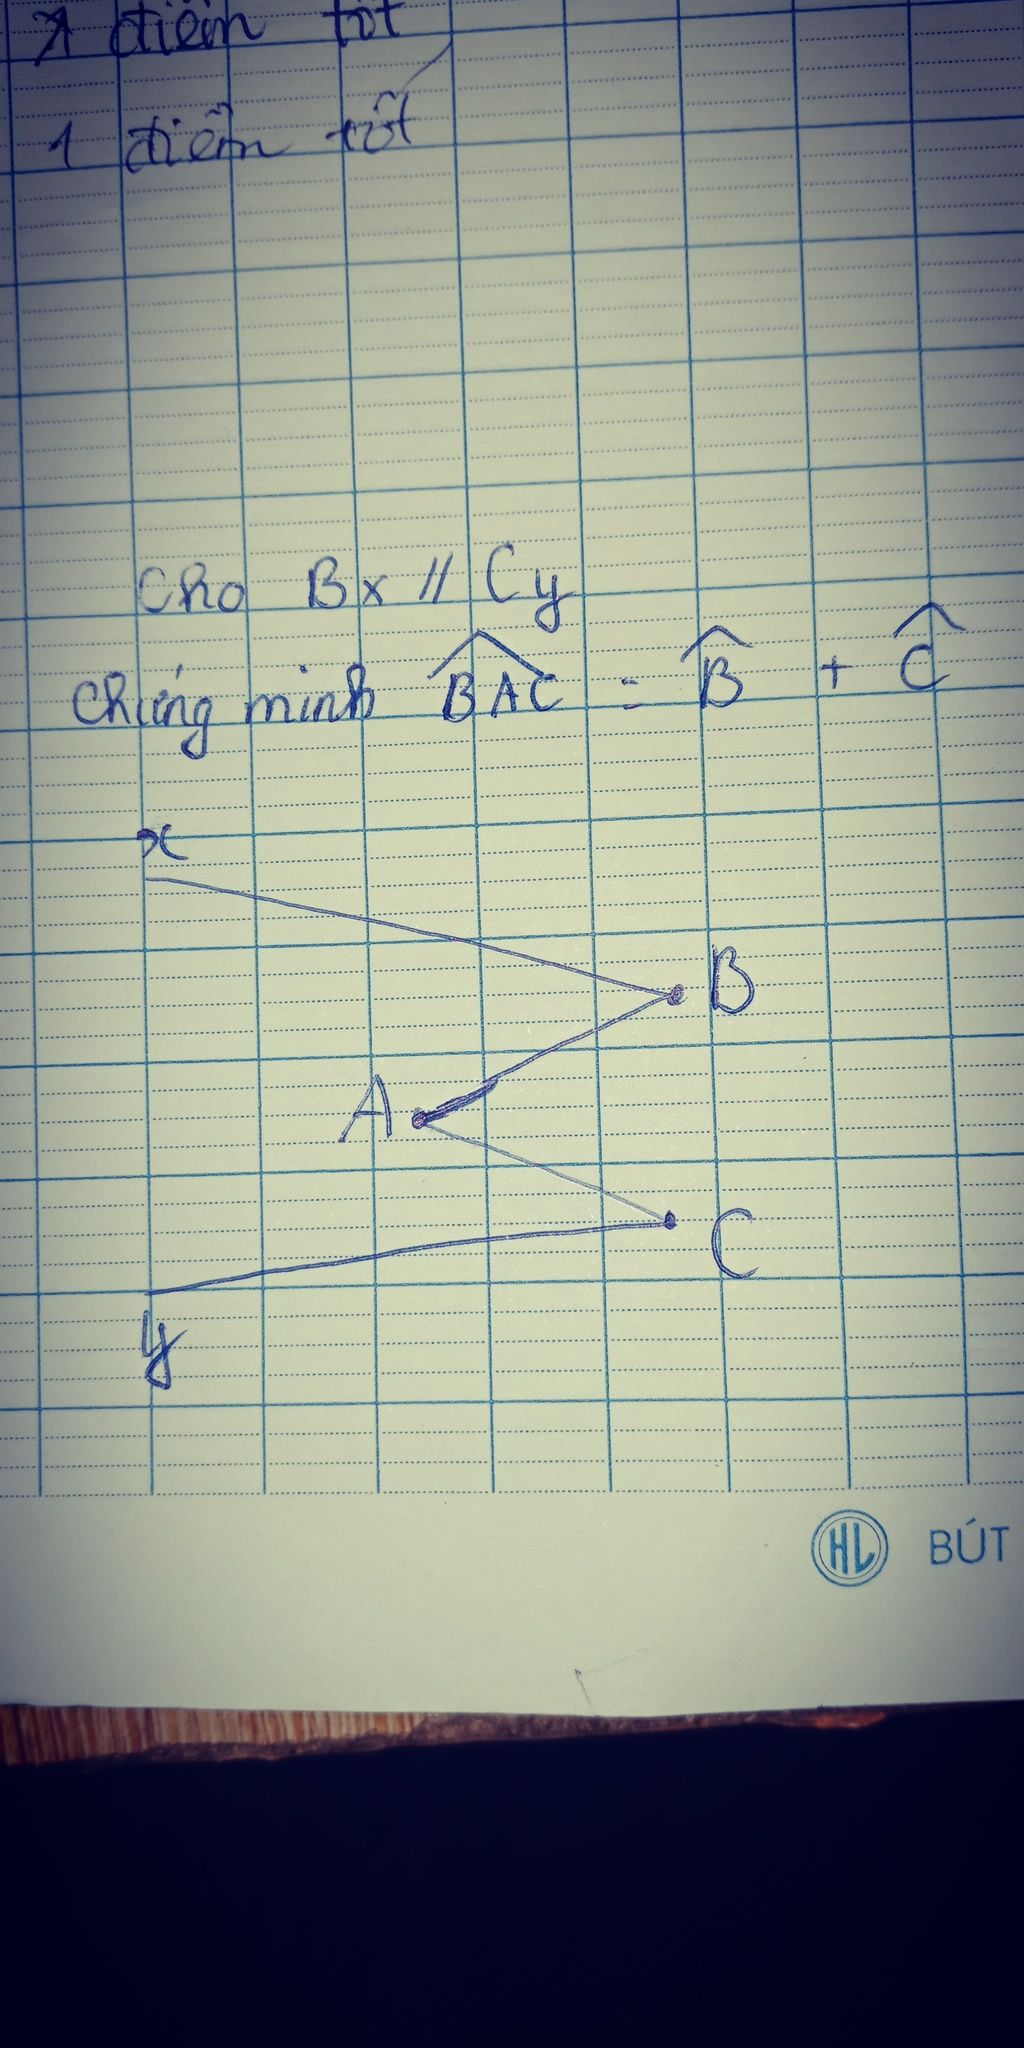 1 điểm tốt
1 điểm tốt
Cho Bx // Cy
Chứng minh BAC = B + C
x
B
A
C
y
HL BÚT